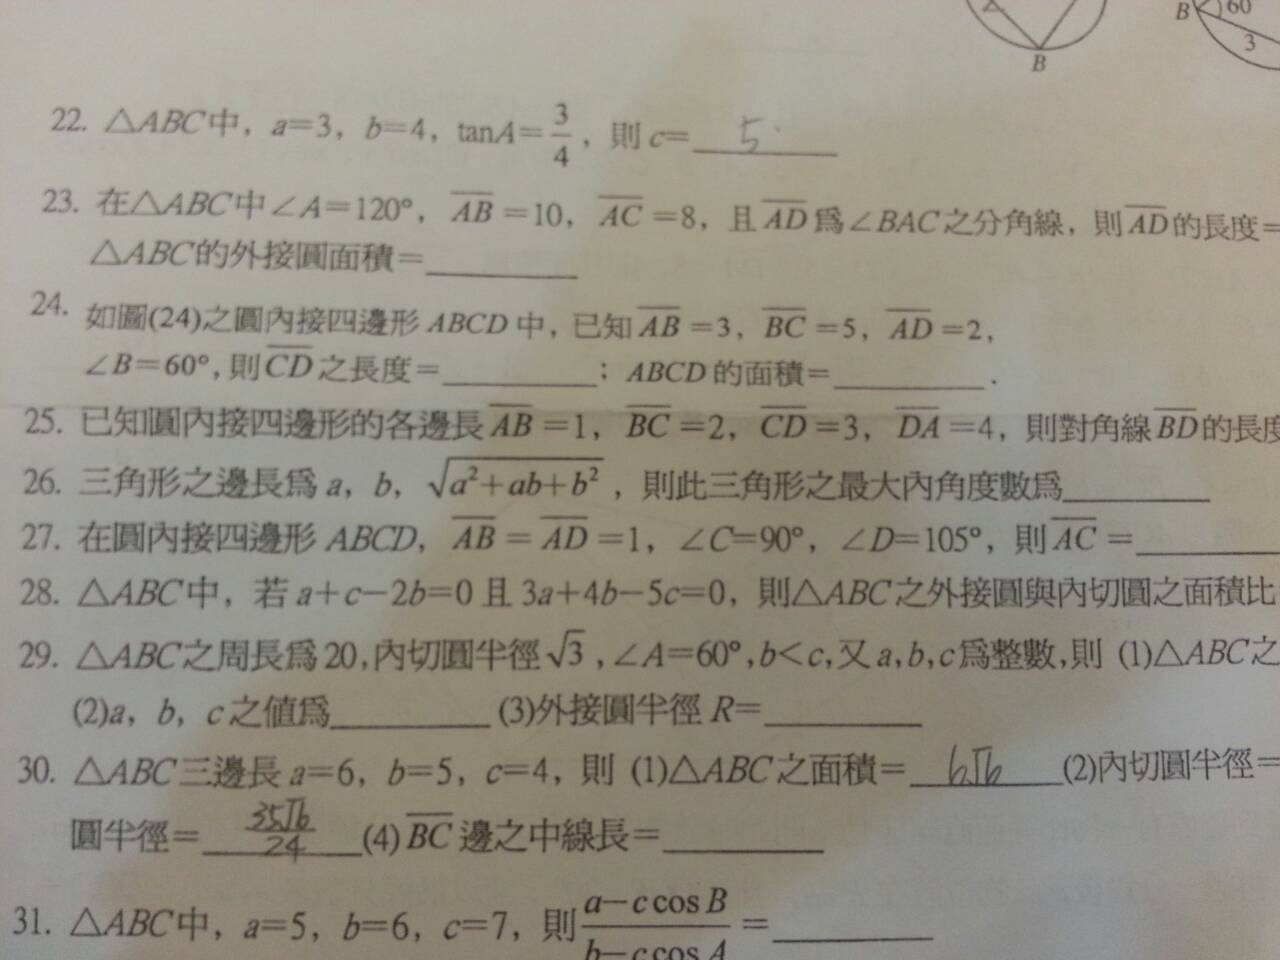 B
B
60
3
22. △ABC中，a=3，b=4，tanA=3/4，則 c= 5
23. 在△ABC中∠A=120°，AB=10，AC=8，且AD爲∠BAC之分角線，則AD的長度=
△ABC的外接圓面積=
24. 如圖(24)之圓內接四邊形ABCD中，已知AB=3，BC=5，AD=2，
∠B=60°，則CD之長度=；ABCD的面積=．
25. 已知圓內接四邊形的各邊長AB=1，BC=2，CD=3，DA=4，則對角線BD的長度
26. 三角形之邊長爲a，b，√(a²+ab+b²)，則此三角形之最大內角度數爲
27. 在圓內接四邊形ABCD，AB=AD=1，∠C=90°，∠D=105°，則AC=
28. △ABC中，若a+c−2b=0且3a+4b−5c=0，則△ABC之外接圓與內切圓之面積比
29. △ABC之周長爲20，內切圓半徑√3，∠A=60°，b<c，又a，b，c爲整數，則 (1)△ABC之
(2)a，b，c之值爲 (3)外接圓半徑R=
30. △ABC三邊長a=6，b=5，c=4，則 (1)△ABC之面積= 6√6 (2)內切圓半徑=
圓半徑= 35√6/24 (4)BC邊之中線長=
31. △ABC中，a=5，b=6，c=7，則 (a−c cos B)/(b−c cos A) =